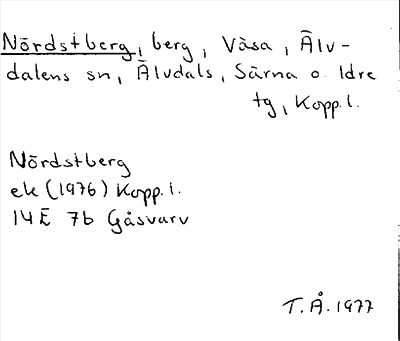 Nördstberg, berg, Våsa, Älv-
dalens sn, Älvdals, Särna o. Idre
tg, Kopp. l.
Nördstberg
ek (1976) Kopp. l.
14E 7b Gåsvarv
T.Å. 1977